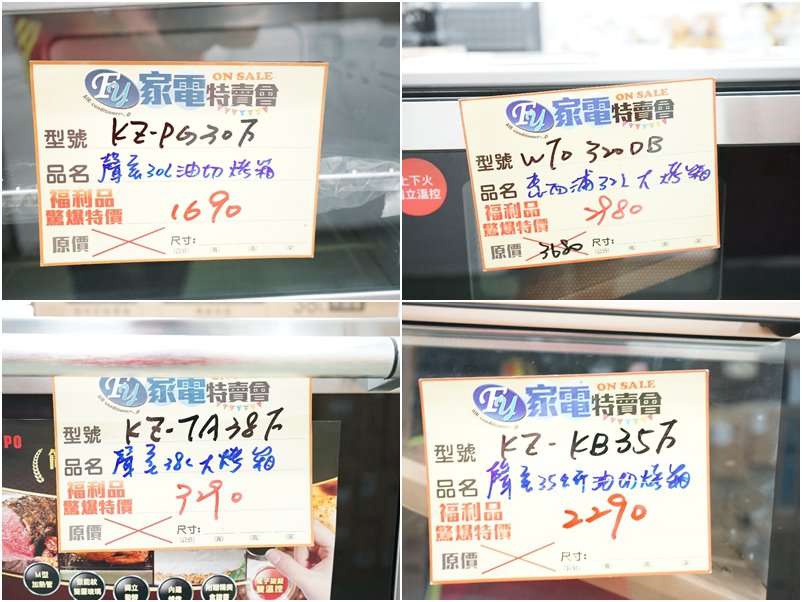 Fy 家電特賣會 ON SALE
AIR conditioner
型號 KZ-PG30下
品名 聲寶30L油切烤箱
福利品
驚爆特價 1690
原價 尺寸:
(公分) (寬) (高) (深)
Fy 家電特賣會 ON SALE
AIR conditioner
型號 WTO 320DB
品名 惠而浦32L大烤箱
福利品
驚爆特價 2980
原價 3680 尺寸:
(公分) (寬) (高) (深)
上下火
獨立溫控
Fy 家電特賣會
AIR conditioner
型號 KZ-TA38下
品名 聲寶38L大烤箱
福利品
驚爆特價 3290
原價 尺寸:
(公分) (寬) (高) (深)
PO
M型
加熱管
雙層玻璃
獨立
內建
電子旋鈕
雙溫控
Fy 家電特賣會 ON SALE
AIR conditioner
型號 KZ-KB35下
品名 聲寶35公升油切烤箱
福利品
驚爆特價 2290
原價 尺寸:
(公分) (寬) (高) (深)